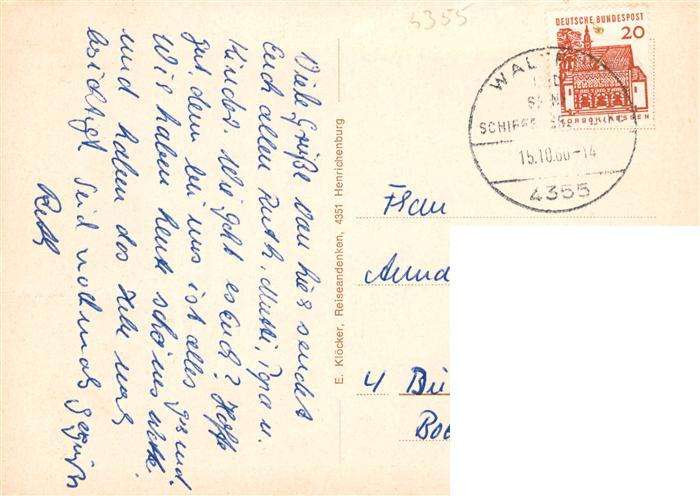 4355
Viele Grüße von hier sendet
Euch allen Ruth, Mutti, Papa u.
Kinder. Wie geht es Euch? Hoffe
gut, denn bei uns ist alles gesund
Wir haben heute schönes Wetter
und haben das
besichtigt Seid nochmals gegrüßt
Ruth
E. Klöcker, Reiseandenken, 4351 Henrichenburg
DEUTSCHE BUNDESPOST
20
WALTROP
15.10.66-14
4355
Frau
4